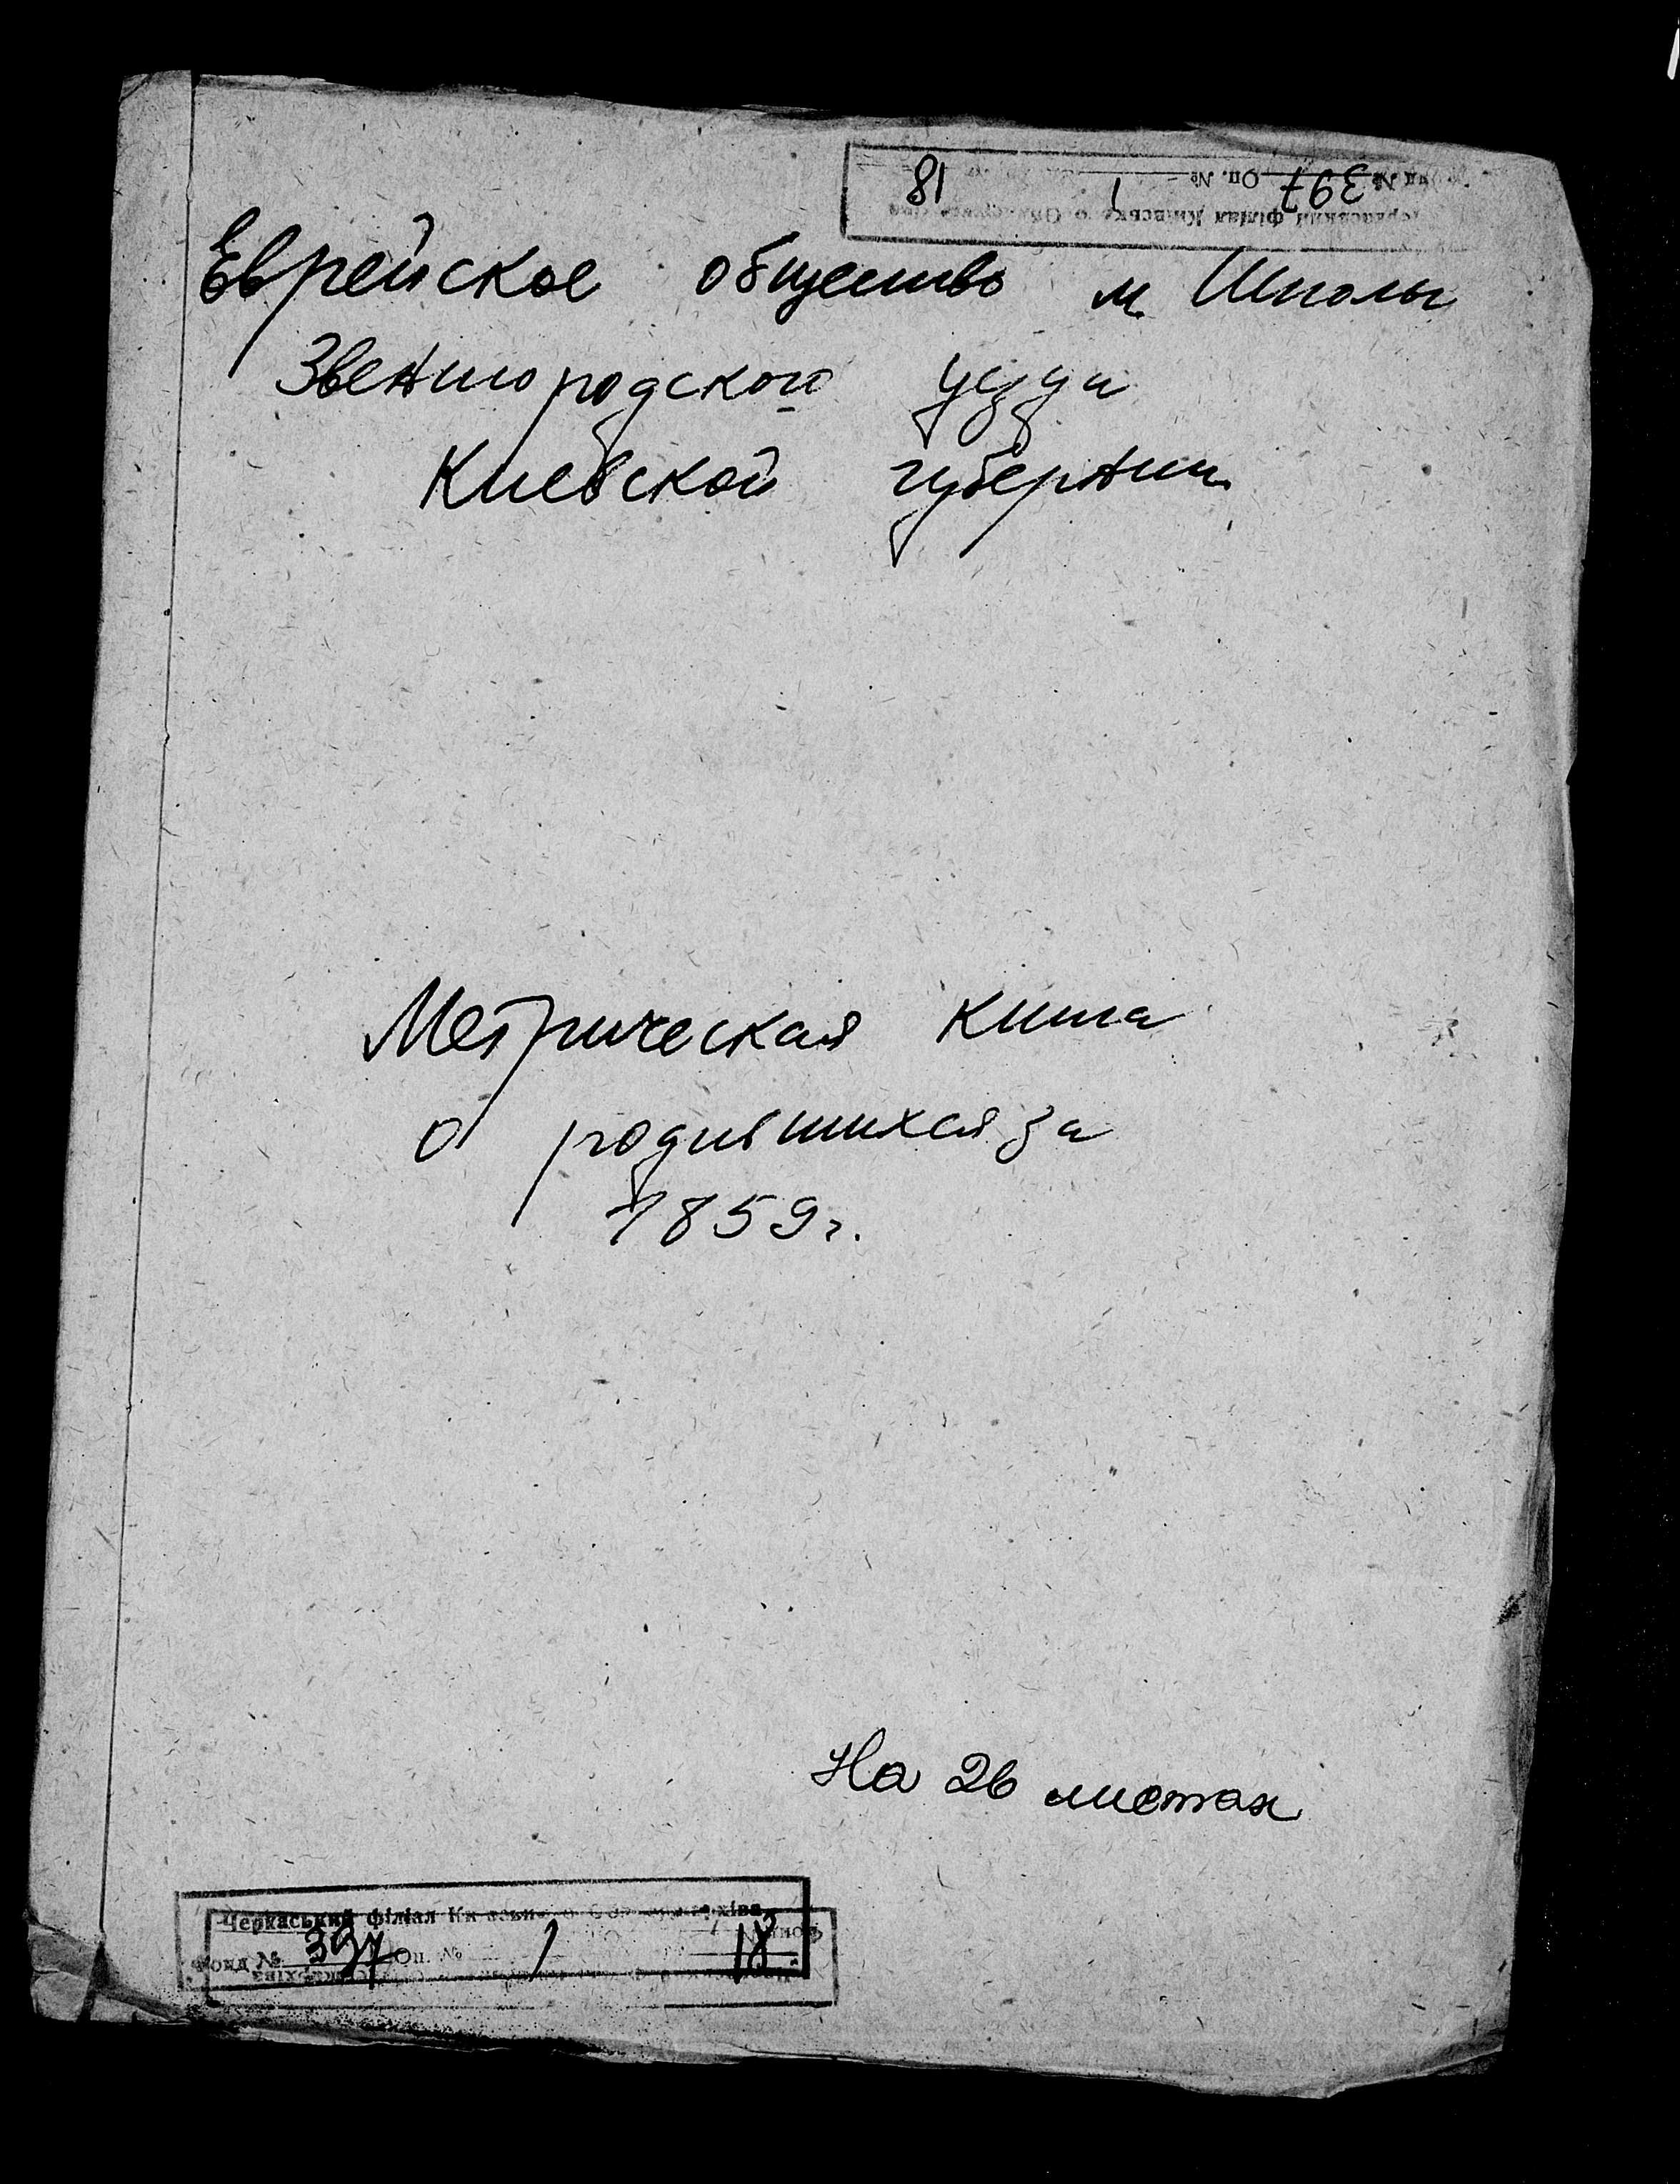 Фонд № 397 Оп. № 1 18
Черкаський філіал Київського
Еврейское общество м. Шполы
Звенигородского уезда
Киевской губернии
Метрическая книга
о родившихся за
1859 г.
На 26 листах
Черкаський філіал
Фонд № 397 Оп. № 1 18